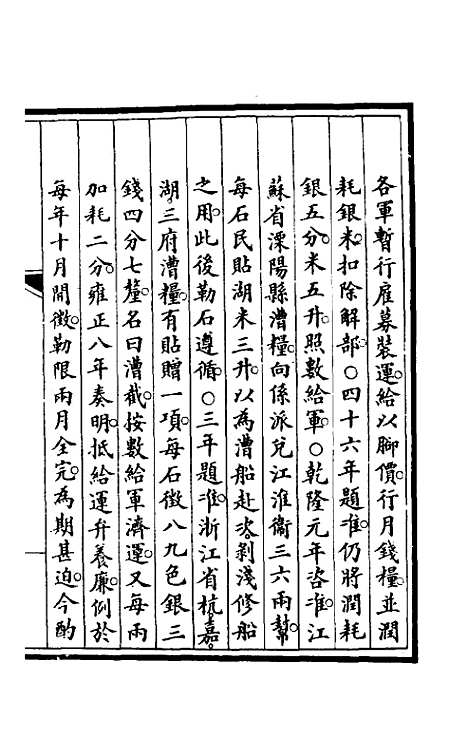 各軍暫行雇募裝運給以腳價行月錢糧並潤
耗銀米扣除解部○四十六年題准仍將潤耗
銀五分米五升照數給軍○乾隆元年咨准江
蘇省溧陽縣漕糧向係派兌江淮衞三六兩幫
每石民貼湖米三升以為漕船赴次剝淺修船
之用此後勒石遵循○三年題准浙江省杭嘉
湖三府漕糧有貼贈一項每石徵八九色銀三
錢四分七釐名曰漕截按數給軍濟運又每兩
加耗二分雍正八年奏明抵給運弁養廉例於
每年十月開徵勒限兩月全完為期甚迫今酌